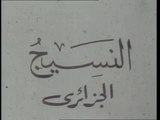 النَسِيجُ
الجزائرى